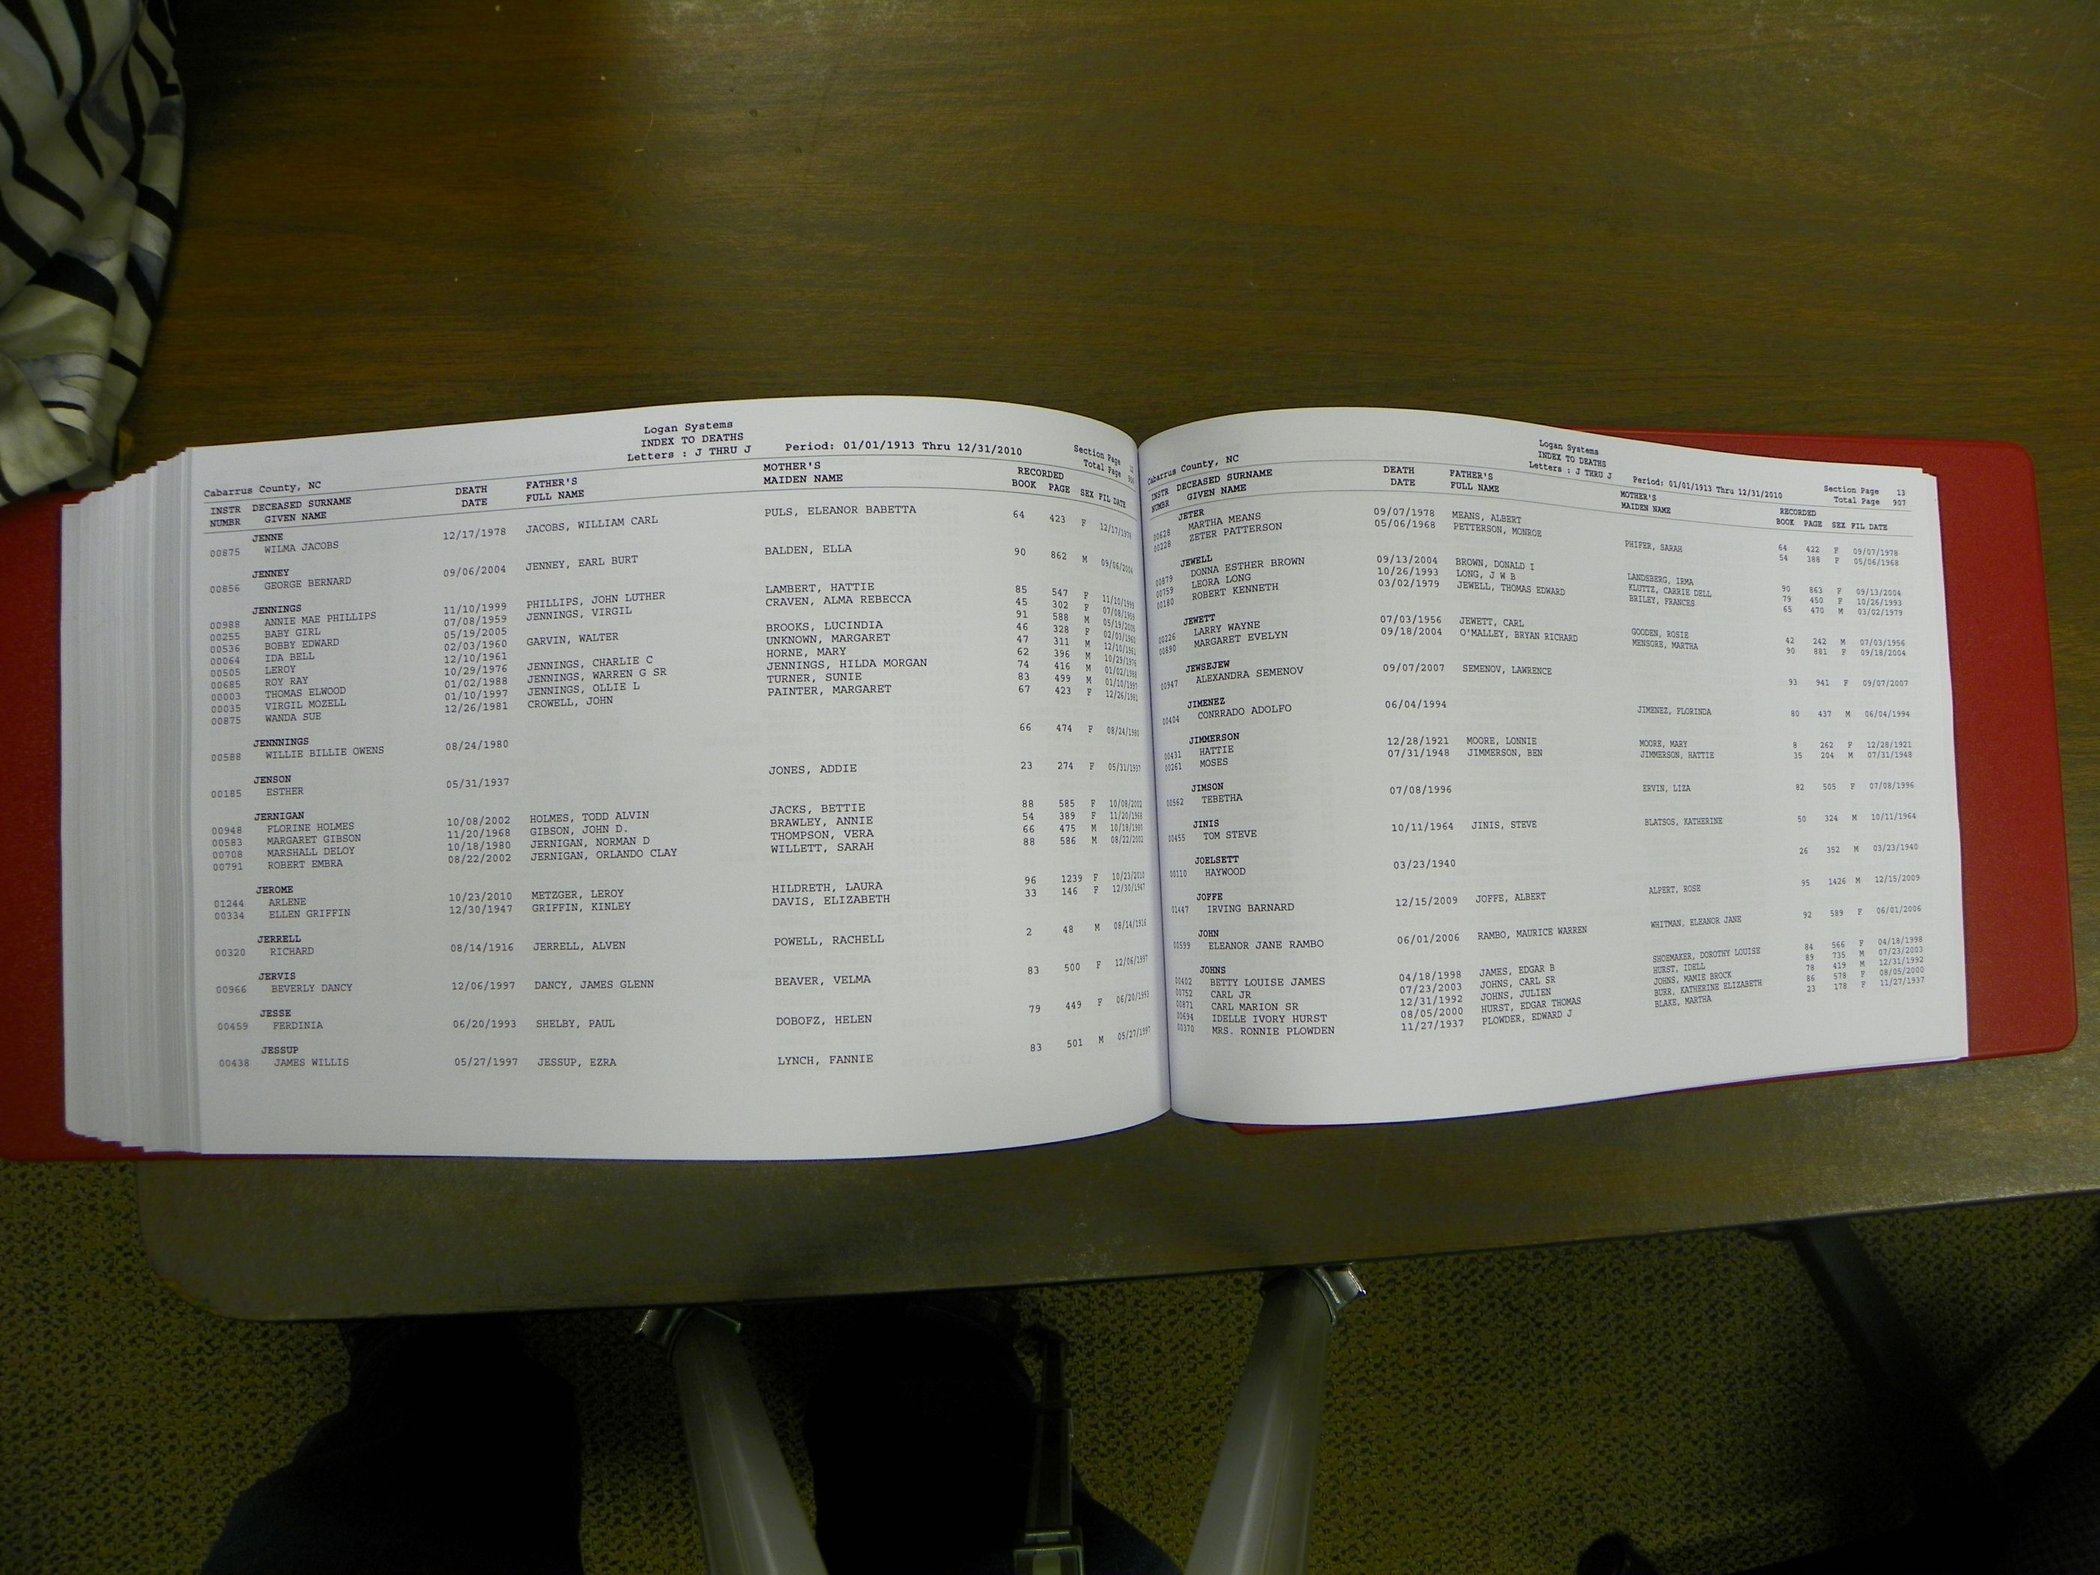 Logan Systems
INDEX TO DEATHS
Letters : J THRU J Period: 01/01/1913 Thru 12/31/2010
Section Page
Total Page
Cabarrus County, NC
INSTR DECEASED SURNAME DEATH FATHER'S MOTHER'S RECORDED
NUMBR GIVEN NAME DATE FULL NAME MAIDEN NAME BOOK PAGE SEX FIL DATE
JENNE
00875 WILMA JACOBS 12/17/1978 JACOBS, WILLIAM CARL PULS, ELEANOR BABETTA 64 423 F 12/17/1978
JENNEY
00856 GEORGE BERNARD 09/06/2004 JENNEY, EARL BURT BALDEN, ELLA 90 862 M 09/06/2004
JENNINGS
00988 ANNIE MAE PHILLIPS 11/10/1999 PHILLIPS, JOHN LUTHER LAMBERT, HATTIE 85 547 F 11/10/1999
00255 BABY GIRL 07/08/1959 JENNINGS, VIRGIL CRAVEN, ALMA REBECCA 45 302 F 07/08/1959
00536 BOBBY EDWARD 05/19/2005 91 588 M 05/19/2005
00064 IDA BELL 02/03/1960 GARVIN, WALTER BROOKS, LUCINDIA 46 328 F 02/03/1960
00505 LEROY 12/10/1961 UNKNOWN, MARGARET 47 311 M 12/10/1961
00685 ROY RAY 10/29/1976 JENNINGS, CHARLIE C HORNE, MARY 62 396 M 10/29/1976
00003 THOMAS ELWOOD 01/02/1988 JENNINGS, WARREN G SR JENNINGS, HILDA MORGAN 74 416 M 01/02/1988
00035 VIRGIL MOZELL 01/10/1997 JENNINGS, OLLIE L TURNER, SUNIE 83 499 M 01/10/1997
00875 WANDA SUE 12/26/1981 CROWELL, JOHN PAINTER, MARGARET 67 423 F 12/26/1981
JENNNINGS
00588 WILLIE BILLIE OWENS 08/24/1980 66 474 F 08/24/1980
JENSON
00185 ESTHER 05/31/1937 JONES, ADDIE 23 274 F 05/31/1937
JERNIGAN
00948 FLORINE HOLMES 10/08/2002 HOLMES, TODD ALVIN JACKS, BETTIE 88 585 F 10/08/2002
00583 MARGARET GIBSON 11/20/1968 GIBSON, JOHN D. BRAWLEY, ANNIE 54 389 F 11/20/1968
00708 MARSHALL DELOY 10/18/1980 JERNIGAN, NORMAN D THOMPSON, VERA 66 475 M 10/18/1980
00791 ROBERT EMBRA 08/22/2002 JERNIGAN, ORLANDO CLAY WILLETT, SARAH 88 586 M 08/22/2002
JEROME
01244 ARLENE 10/23/2010 METZGER, LEROY HILDRETH, LAURA 96 1239 F 10/23/2010
00334 ELLEN GRIFFIN 12/30/1947 GRIFFIN, KINLEY DAVIS, ELIZABETH 33 146 F 12/30/1947
JERRELL
00320 RICHARD 08/14/1916 JERRELL, ALVEN POWELL, RACHELL 2 48 M 08/14/1916
JERVIS
00966 BEVERLY DANCY 12/06/1997 DANCY, JAMES GLENN BEAVER, VELMA 83 500 F 12/06/1997
JESSE
00459 FERDINIA 06/20/1993 SHELBY, PAUL DOBOFZ, HELEN 79 449 F 06/20/1993
JESSUP
00438 JAMES WILLIS 05/27/1997 JESSUP, EZRA LYNCH, FANNIE 83 501 M 05/27/1997
Logan Systems
INDEX TO DEATHS
Letters : J THRU J Period: 01/01/1913 Thru 12/31/2010
Section Page 13
Total Page 907
Cabarrus County, NC
INSTR DECEASED SURNAME DEATH FATHER'S MOTHER'S RECORDED
NUMBR GIVEN NAME DATE FULL NAME MAIDEN NAME BOOK PAGE SEX FIL DATE
JETER
00628 MARTHA MEANS 09/07/1978 MEANS, ALBERT PHIFER, SARAH 64 422 F 09/07/1978
00228 ZETER PATTERSON 05/06/1968 PETTERSON, MONROE 54 388 F 05/06/1968
JEWELL
00879 DONNA ESTHER BROWN 09/13/2004 BROWN, DONALD I LANDSBERG, IRMA 90 863 F 09/13/2004
00759 LEORA LONG 10/26/1993 LONG, J W B KLUTTZ, CARRIE DELL 79 450 F 10/26/1993
00180 ROBERT KENNETH 03/02/1979 JEWELL, THOMAS EDWARD BRILEY, FRANCES 65 470 M 03/02/1979
JEWETT
00226 LARRY WAYNE 07/03/1956 JEWETT, CARL GOODEN, ROSIE 42 242 M 07/03/1956
00890 MARGARET EVELYN 09/18/2004 O'MALLEY, BRYAN RICHARD MENSORE, MARTHA 90 881 F 09/18/2004
JEWSEJEW
00947 ALEXANDRA SEMENOV 09/07/2007 SEMENOV, LAWRENCE 93 941 F 09/07/2007
JIMENEZ
00404 CONRRADO ADOLFO 06/04/1994 JIMENEZ, FLORINDA 80 437 M 06/04/1994
JIMMERSON
00431 HATTIE 12/28/1921 MOORE, LONNIE MOORE, MARY 8 262 F 12/28/1921
00261 MOSES 07/31/1948 JIMMERSON, BEN JIMMERSON, HATTIE 35 204 M 07/31/1948
JIMSON
00562 TEBETHA 07/08/1996 ERVIN, LIZA 82 505 F 07/08/1996
JINIS
00455 TOM STEVE 10/11/1964 JINIS, STEVE BLATSOS, KATHERINE 50 324 M 10/11/1964
JOELSETT
00110 HAYWOOD 03/23/1940 26 352 M 03/23/1940
JOFFE
01447 IRVING BARNARD 12/15/2009 JOFFE, ALBERT ALPERT, ROSE 95 1426 M 12/15/2009
JOHN
00599 ELEANOR JANE RAMBO 06/01/2006 RAMBO, MAURICE WARREN WHITMAN, ELEANOR JANE 92 589 F 06/01/2006
JOHNS
00402 BETTY LOUISE JAMES 04/18/1998 JAMES, EDGAR B SHOEMAKER, DOROTHY LOUISE 84 566 F 04/18/1998
00752 CARL JR 07/23/2003 JOHNS, CARL SR HURST, IDELL 89 735 M 07/23/2003
00871 CARL MARION SR 12/31/1992 JOHNS, JULIEN JOHNS, MAMIE BROCK 78 419 M 12/31/1992
00694 IDELLE IVORY HURST 08/05/2000 HURST, EDGAR THOMAS BURR, KATHERINE ELIZABETH 86 578 F 08/05/2000
00370 MRS. RONNIE PLOWDEN 11/27/1937 PLOWDER, EDWARD J BLAKE, MARTHA 23 178 F 11/27/1937